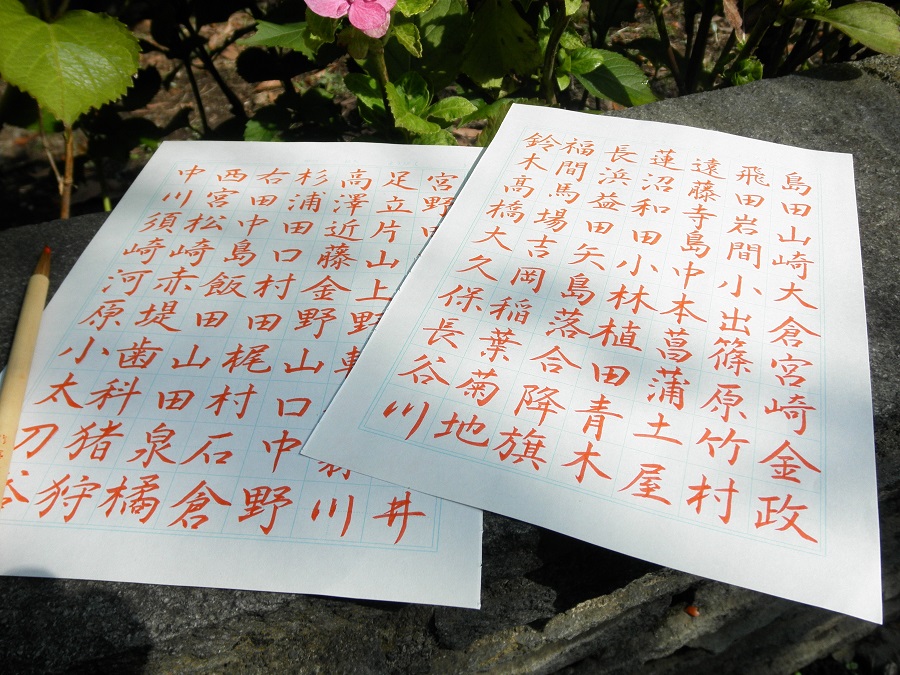 島田山崎大倉宮崎金政
飛田岩間小出篠原竹村
遠藤寺島中本菖蒲土屋
蓮沼和田小林植田青木
長浜益田矢島落合降旗
福間馬場吉岡稲葉菊地
鈴木髙橋大久保長谷川
宮野井
足立片山上野川
高澤近藤金野山口中野
杉浦田口村田梶村石倉
右田中島飯田山田泉橘
西宮松崎赤堤歯科猪狩
中川須崎河原小太刀谷